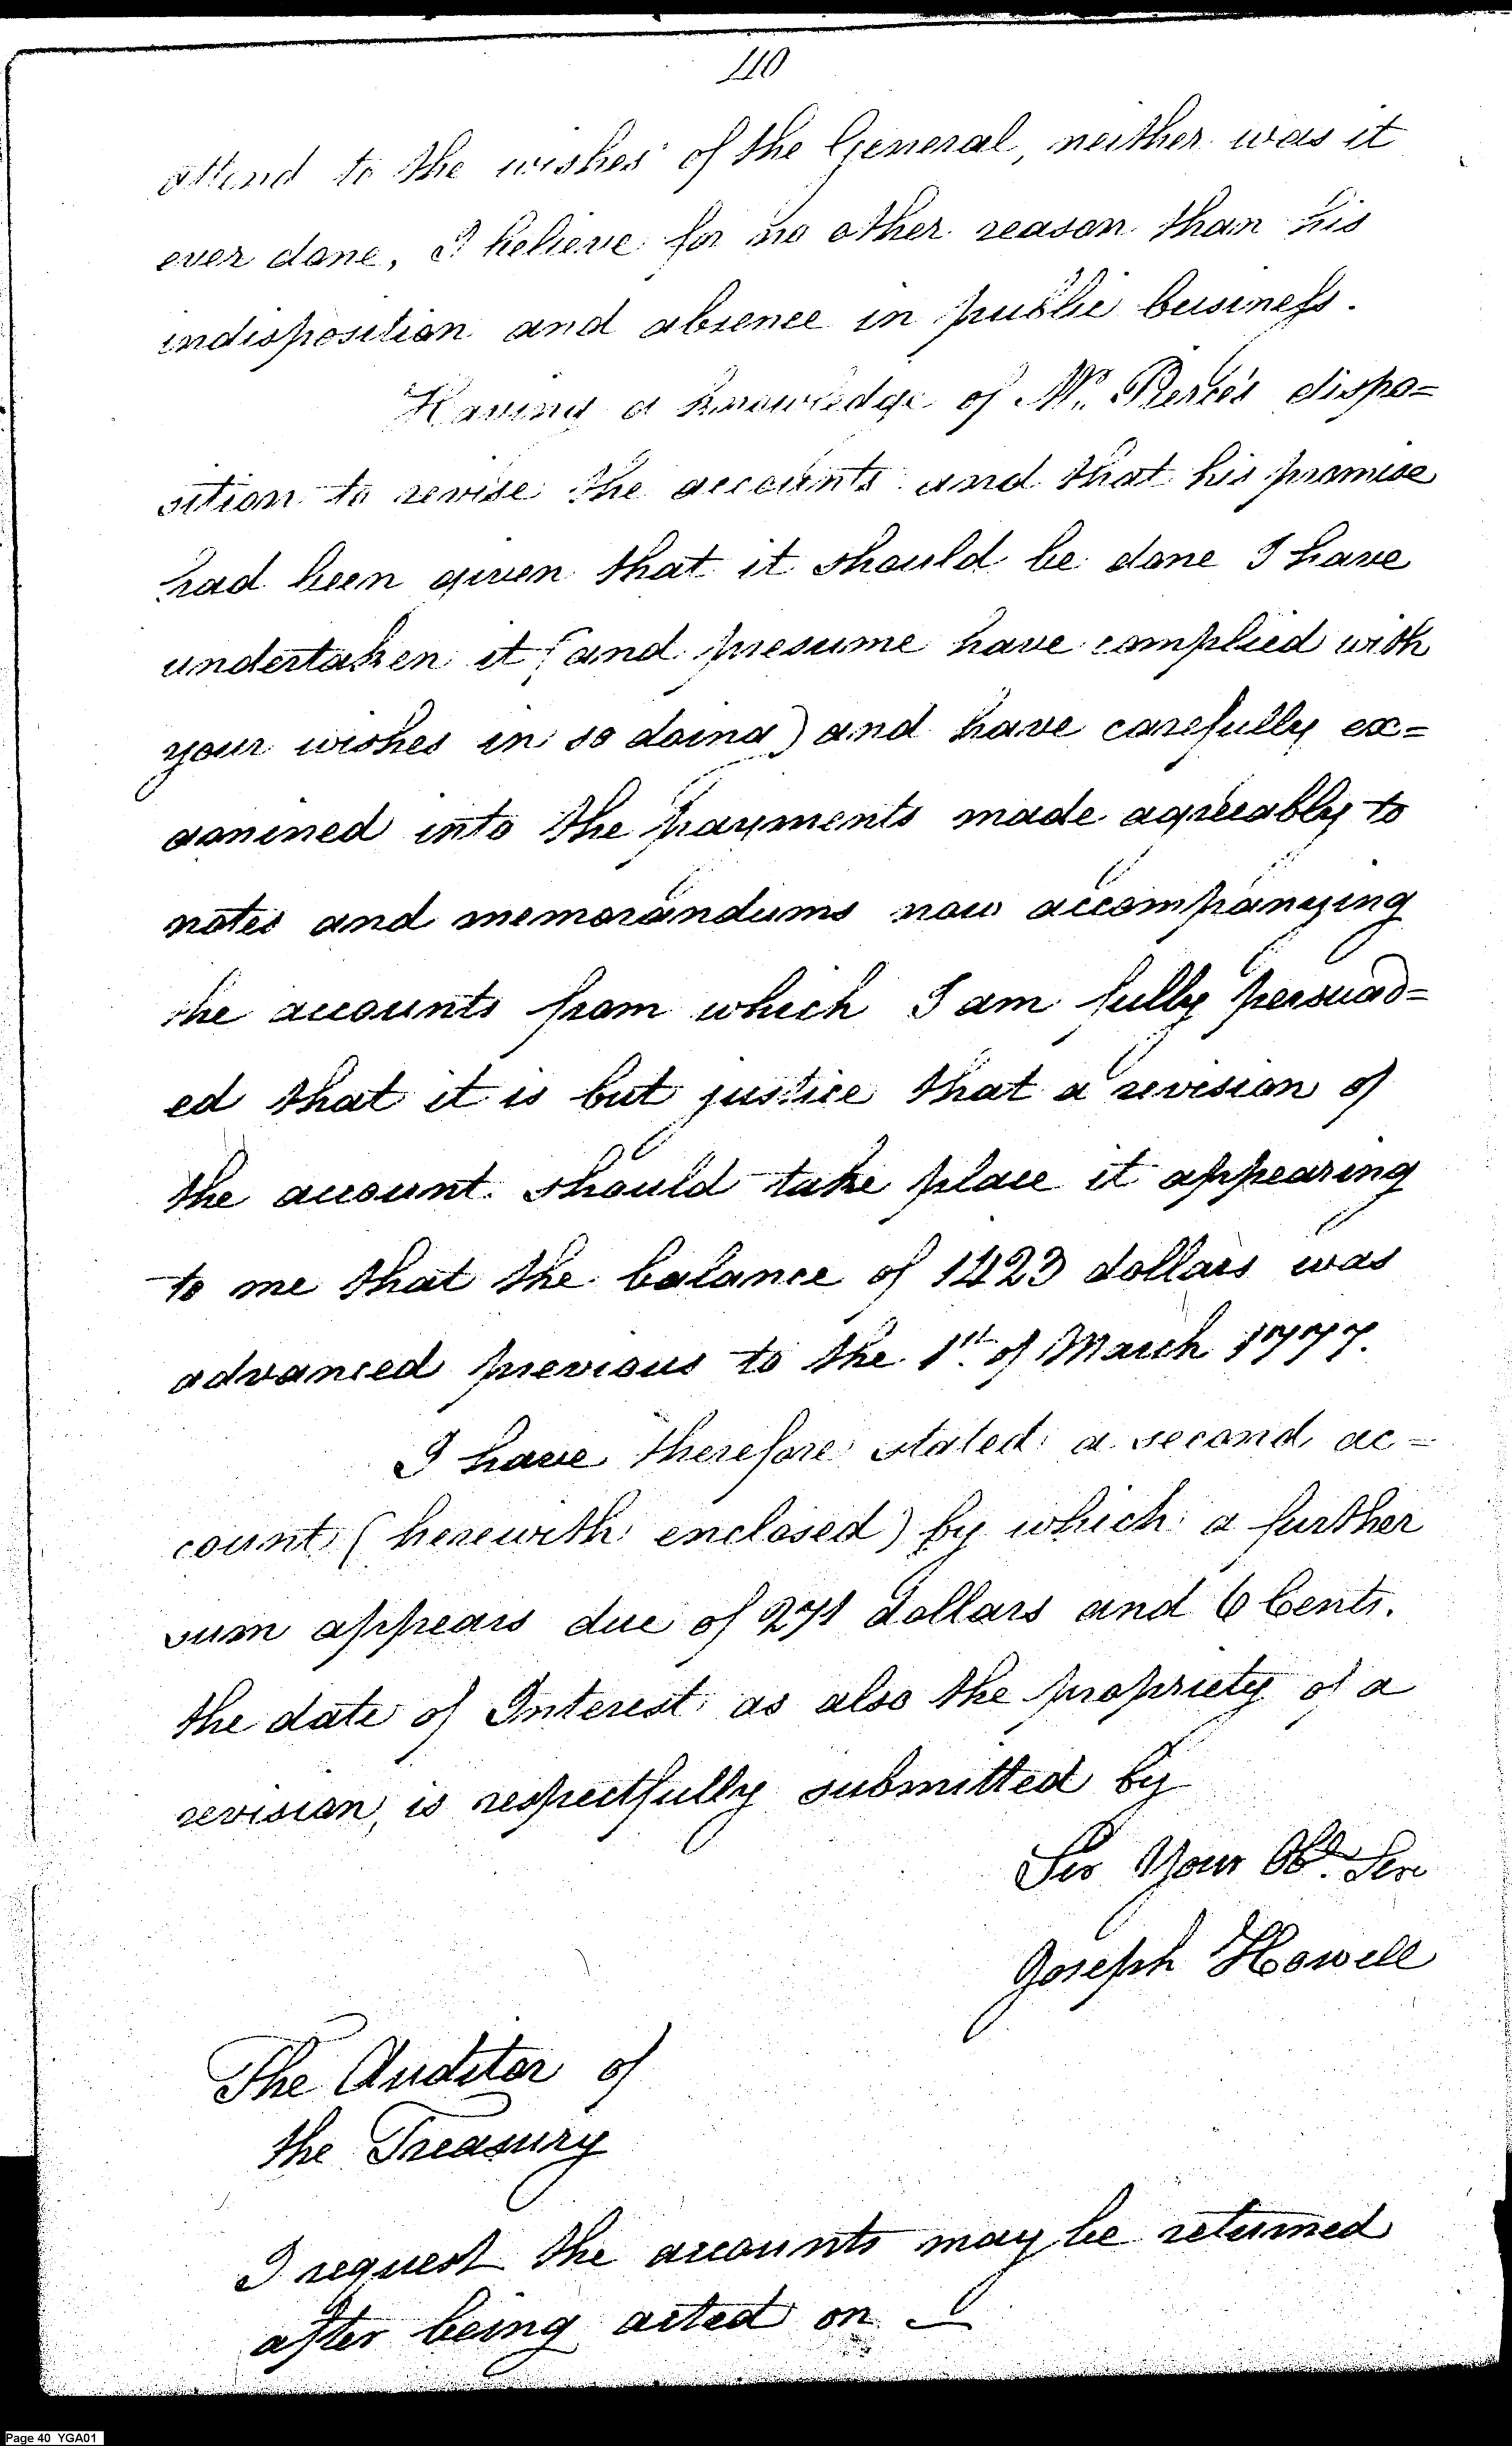 110
attend to the wishes of the General, neither was it
ever done, I believe for no other reason than his
indisposition and absence in public business.
Having a knowledge of Mr. Pierce's dispo=
sition to revise the accounts and that his promise
had been given that it should be done I have
undertaken it (and presume have complied with
your wishes in so doing) and have carefully ex=
amined into the payments made agreeably to
notes and memorandums now accompanying
the accounts from which I am fully persuad=
ed that it is but justice that a revision of
the account should take place it appearing
to me that the balance of 1423 dollars was
advanced previous to the 1st. of March 1777.
I have therefore stated a second ac=
count (herewith enclosed) by which a further
sum appears due of 271 dollars and 6 Cents.
the date of Interest as also the propriety of a
revision, is respectfully submitted by
Sir Your Obt. Ser
Joseph Howell
The Auditor of
the Treasury
I request the accounts may be returned
after being acted on —
Page 40 YGA01